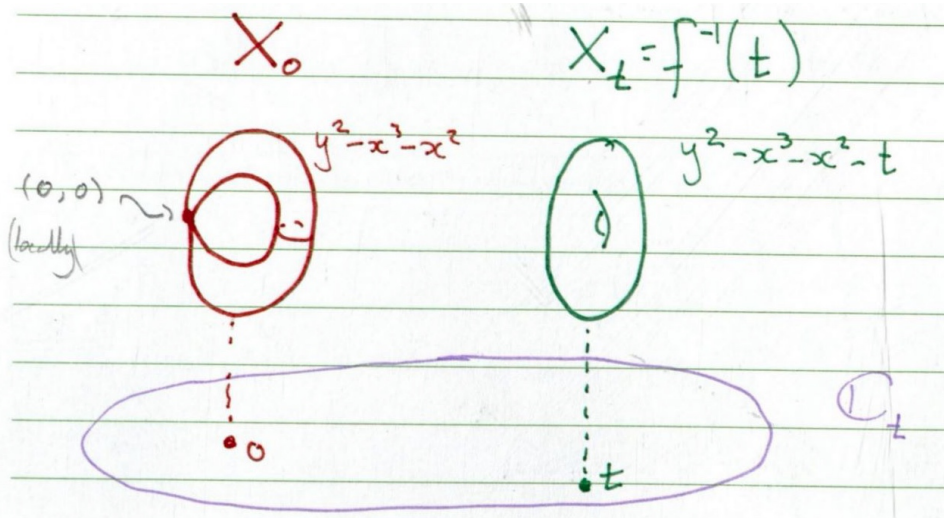 X₀
X_t = f⁻¹(t)
y² - x³ - x²
y² - x³ - x² - t
(0,0)
(locally)
0
t
ℂ_t